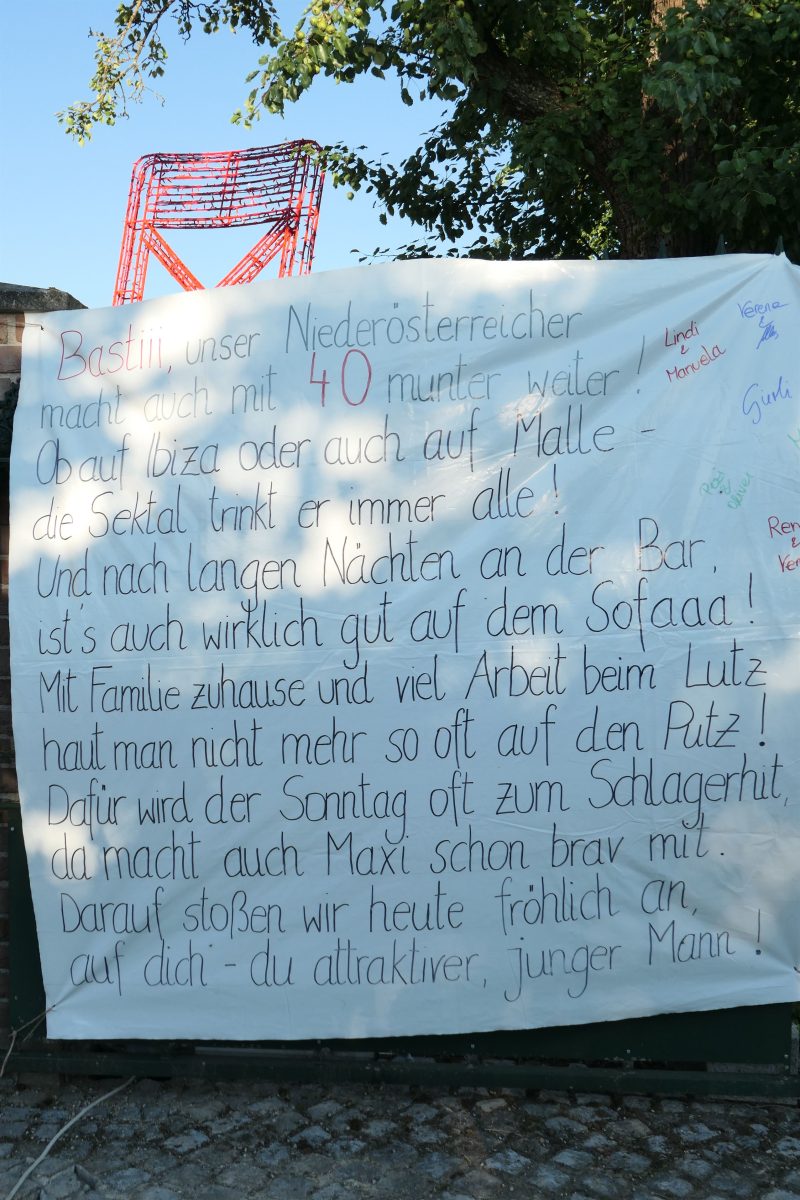 Bastiii, unser Niederösterreicher
macht auch mit 40 munter weiter!
Ob auf Ibiza oder auch auf Malle -
die Sektal trinkt er immer alle!
Und nach langen Nächten an der Bar,
ist's auch wirklich gut auf dem Sofaaa!
Mit Familie zuhause und viel Arbeit beim Lutz
haut man nicht mehr so oft auf den Putz!
Dafür wird der Sonntag oft zum Schlagerhit,
da macht auch Maxi schon brav mit.
Darauf stoßen wir heute fröhlich an,
auf dich - du attraktiver, junger Mann!
Lindi
&
Manuela
Verena
&